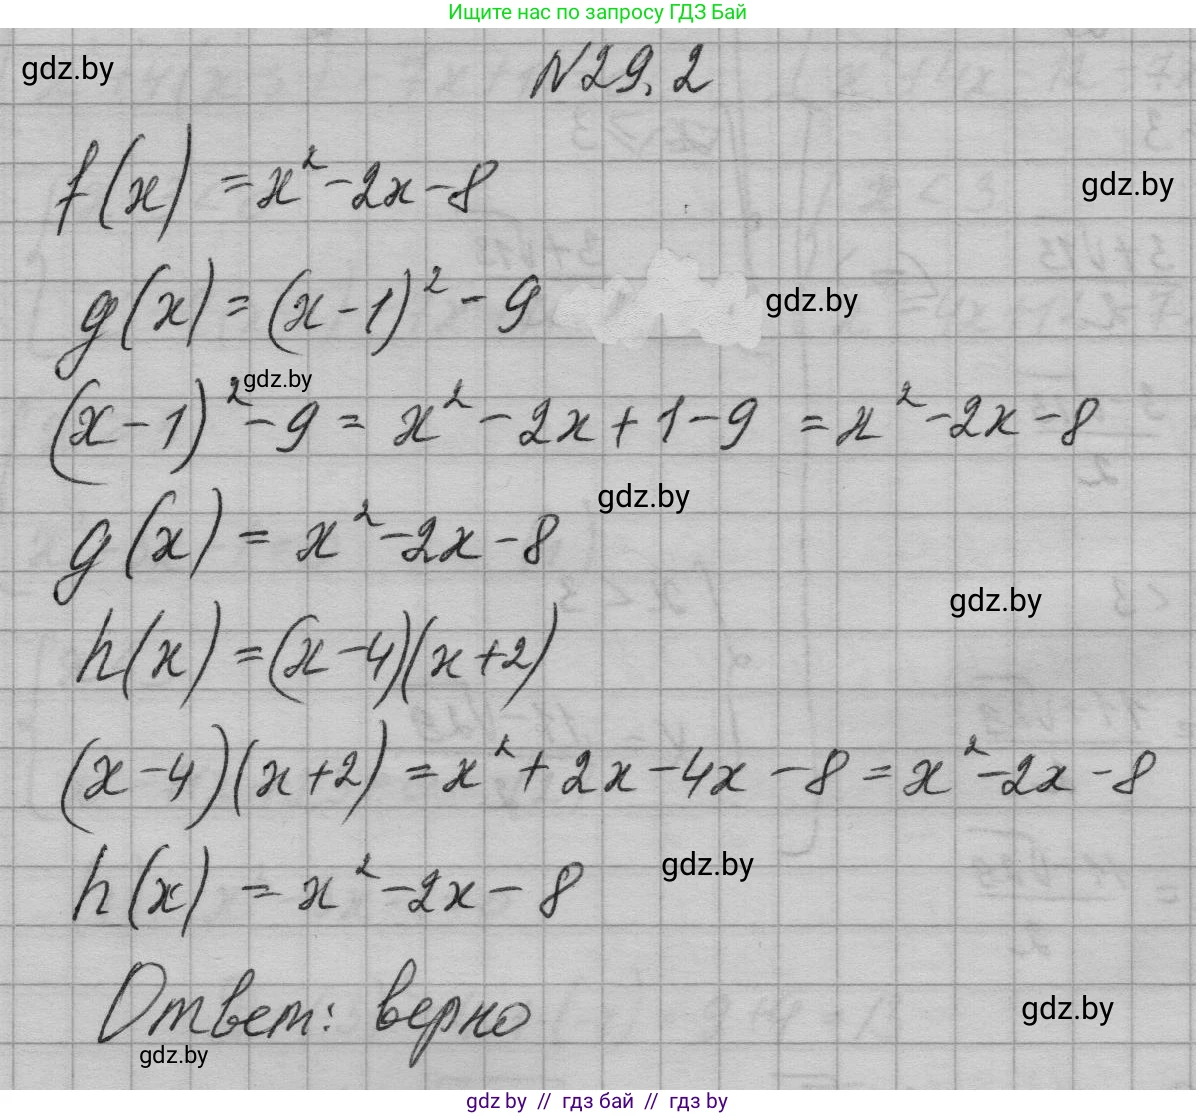 Ищите нас по запросу ГДЗ Бай
gdz.by
N29.2
f(x) = x² - 2x - 8
gdz.by
g(x) = (x - 1)² - 9
gdz.by
gdz.by
(x - 1)² - 9 = x² - 2x + 1 - 9 = x² - 2x - 8
gdz.by
g(x) = x² - 2x - 8
gdz.by
h(x) = (x - 4)(x + 2)
(x - 4)(x + 2) = x² + 2x - 4x - 8 = x² - 2x - 8
gdz.by
h(x) = x² - 2x - 8
Ответ: верно
gdz.by
gdz.by
gdz by // гдз бай // гдз by